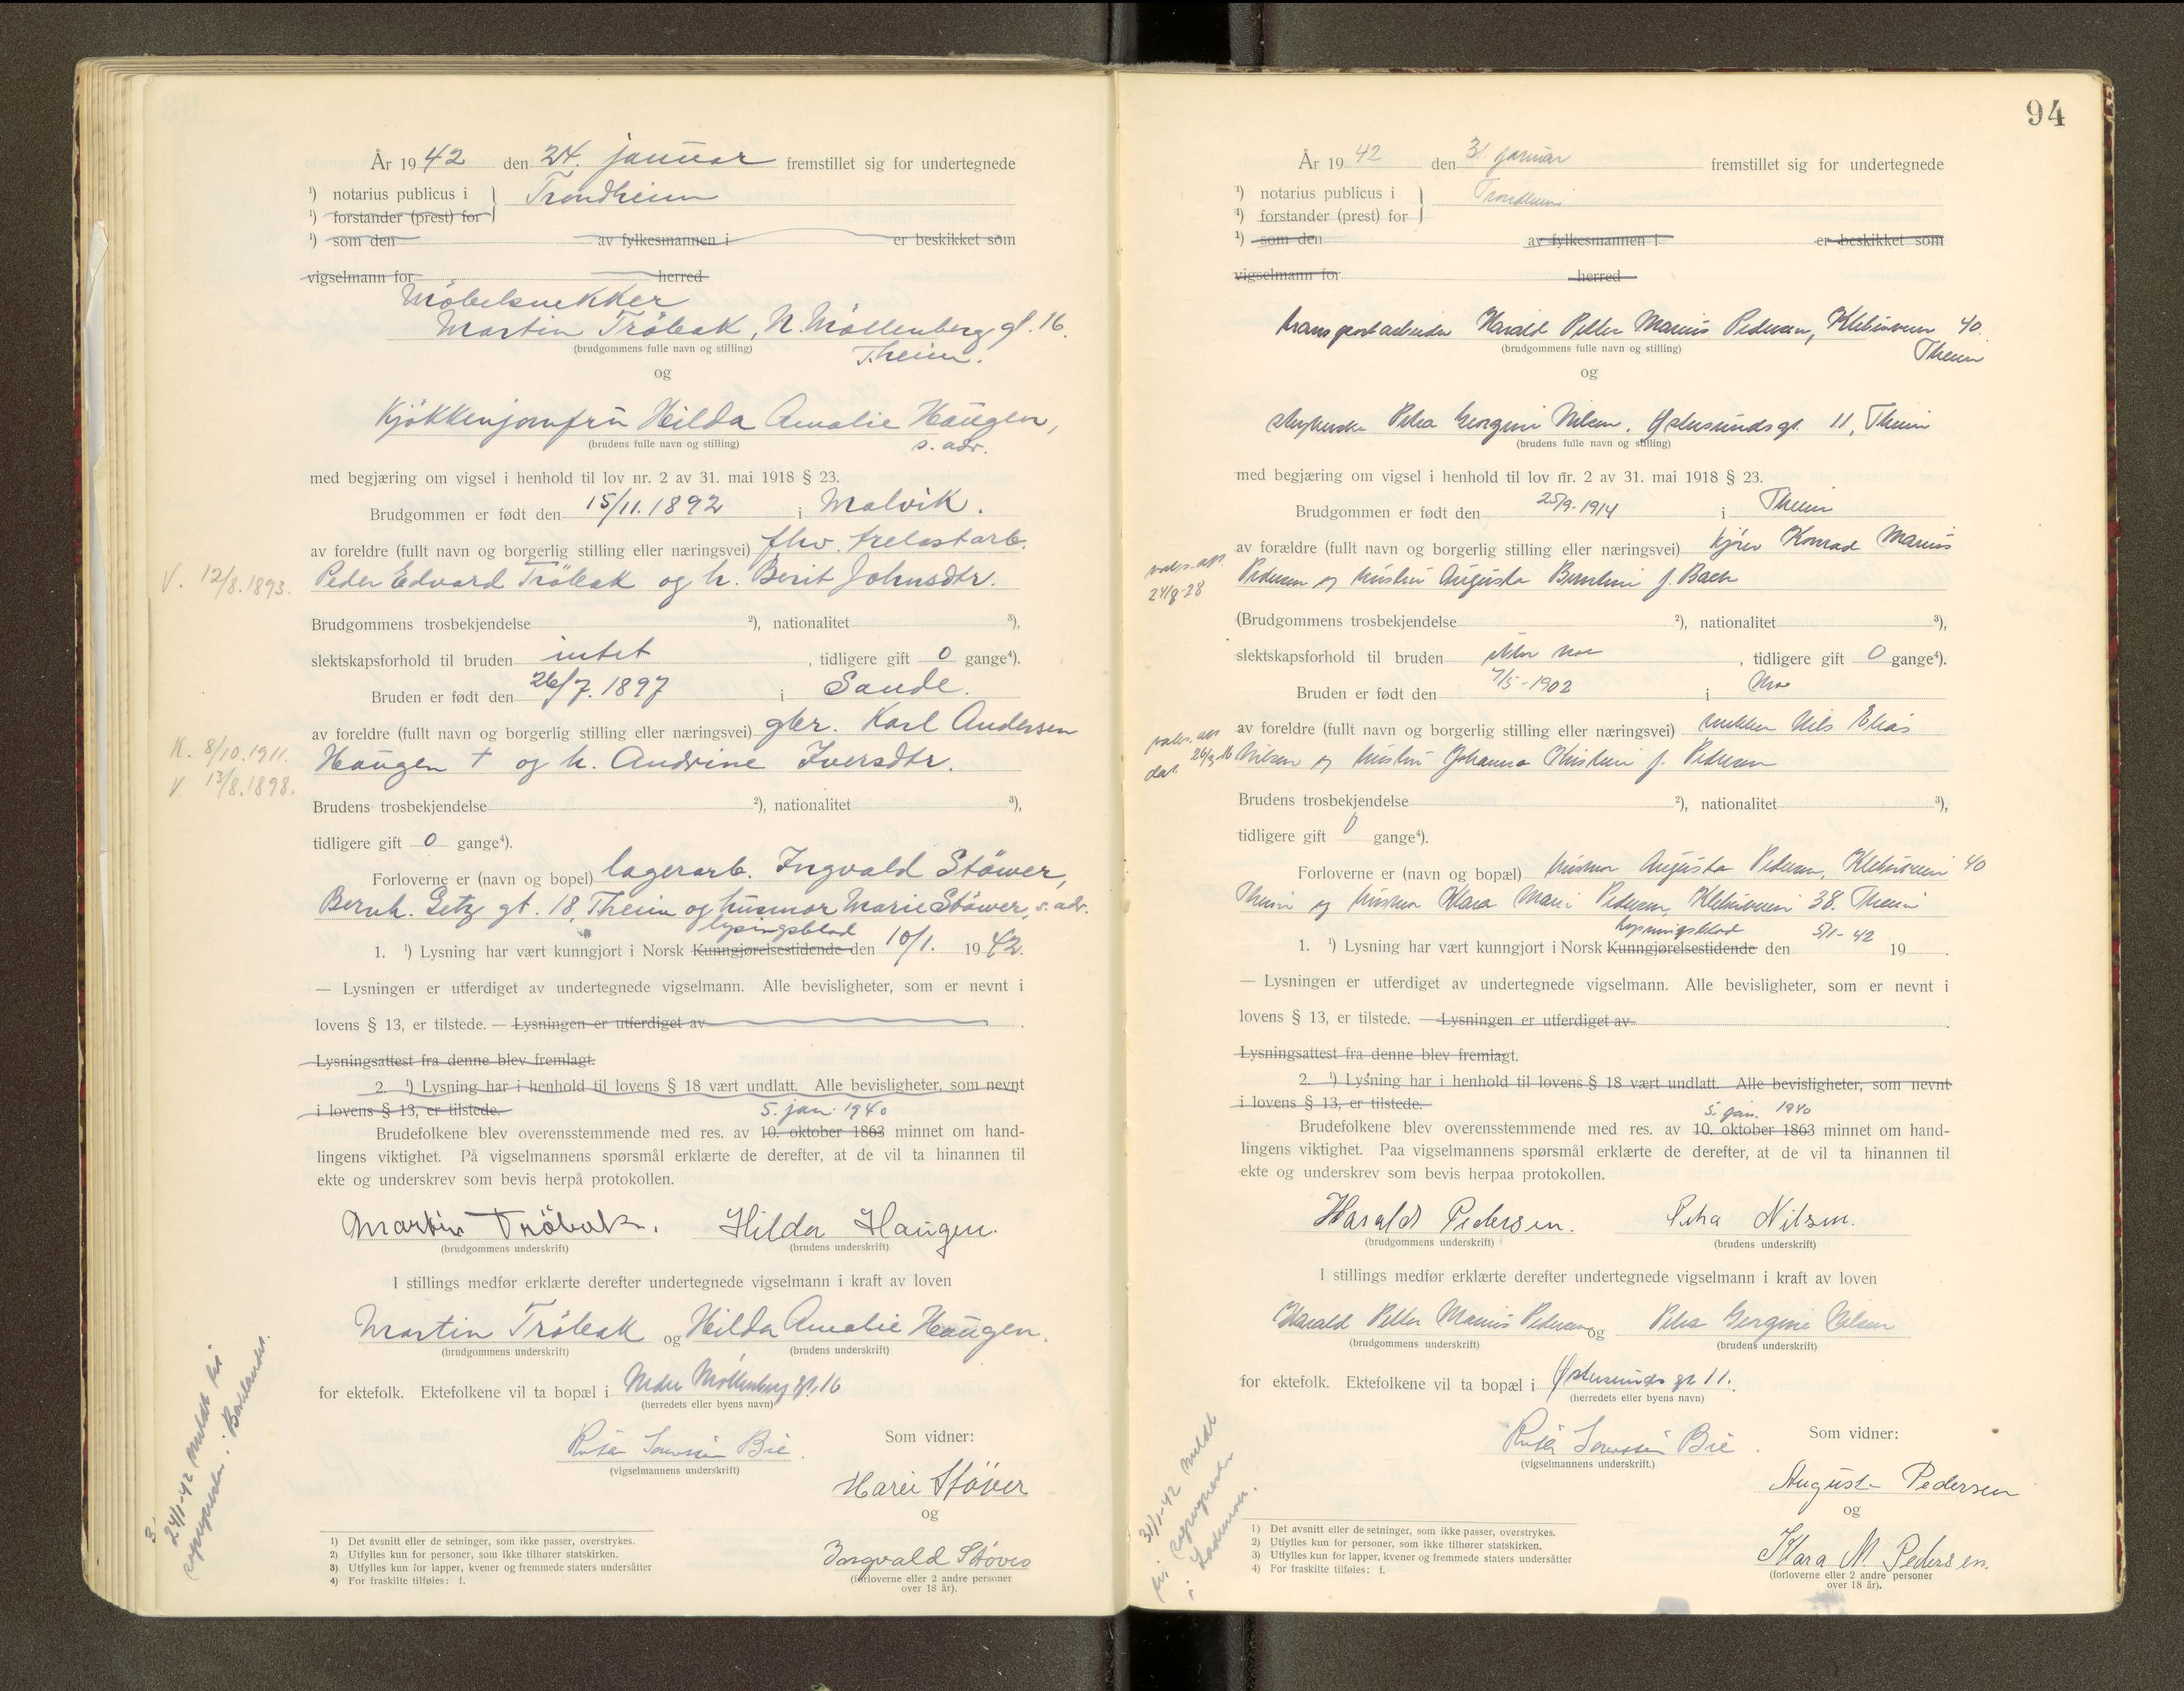 År 1942 den 24. januar fremstillet sig for undertegnede
¹) notarius publicus i } Trondheim
¹) forstander (prest) for
¹) som den av fylkesmannen i er beskikket som
vigselmann for herred
Möbelsnekker
Martin Tröbak, N. Möllenberg gt. 16.
(brudgommens fulle navn og stilling)
T.heim.
og
Kjökkenjomfru Hilda Amalie Haugen,
(brudens fulle navn og stilling) s. adr.
med begjæring om vigsel i henhold til lov nr. 2 av 31. mai 1918 § 23.
Brudgommen er født den 15/11.1892 i Malvik.
av foreldre (fullt navn og borgerlig stilling eller næringsvei) fhv. trelastarb.
V. 12/8.1893. Peder Edvard Tröbak og h. Berit Johnsdtr.
Brudgommens trosbekjendelse ²), nationalitet ³),
slektskapsforhold til bruden intet, tidligere gift 0 gange⁴).
Bruden er født den 26/7.1897 i Sande.
av foreldre (fullt navn og borgerlig stilling eller næringsvei) gbr. Karl Andersen
K. 8/10.1911. Haugen † og h. Andrine Iversdtr.
V. 13/8.1898.
Brudens trosbekjendelse ²), nationalitet ³),
tidligere gift 0 gange⁴).
Forloverne er (navn og bopel) lagerarb. Ingvald Stöwer,
Bernh. Getz gt. 18, T.heim og husmor Marie Stöwer, s. adr.
lysingsblad
1. ¹) Lysning har vært kunngjort i Norsk Kunngjørelsestidende den 10/1. 1942.
— Lysningen er utferdiget av undertegnede vigselmann. Alle bevisligheter, som er nevnt i
lovens § 13, er tilstede. — Lysningen er utferdiget av .
Lysningsattest fra denne blev fremlagt.
2. ¹) Lysning har i henhold til lovens § 18 vært undlatt. Alle bevisligheter, som nevnt
i lovens § 13, er tilstede.
5. jan. 1940
Brudefolkene blev overensstemmende med res. av 10. oktober 1863 minnet om hand-
lingens viktighet. På vigselmannens spørsmål erklærte de derefter, at de vil ta hinannen til
ekte og underskrev som bevis herpå protokollen.
Martin Tröbak. Hilda Haugen.
(brudgommens underskrift) (brudens underskrift)
I stillings medfør erklærte derefter undertegnede vigselmann i kraft av loven
Martin Tröbak og Hilda Amalie Haugen.
(brudgommens underskrift) (brudens underskrift)
for ektefolk. Ektefolkene vil ta bopæl i Nedre Möllenberg gt. 16
(herredets eller byens navn)
Bie. Som vidner:
(vigselmannens underskrift)
Marie Støver
og
Ingvald Støver
(forloverne eller 2 andre personer
over 18 år).
1) Det avsnitt eller de setninger, som ikke passer, overstrykes.
2) Utfylles kun for personer, som ikke tilhører statskirken.
3) Utfylles kun for lapper, kvener og fremmede staters undersåtter
4) For fraskilte tilføies: f.
24/1-42 meldt til
sognepresten i Bakklandet.
94
År 1942 den 31. januar fremstillet sig for undertegnede
¹) notarius publicus i } Trondheim
¹) forstander (prest) for
¹) som den av fylkesmannen i er beskikket som
vigselmann for herred
transportarbeider Harald Petter Marius Pedersen, Klæbuveien 40.
(brudgommens fulle navn og stilling) T.heim
og
Petra Georgine Nilsen, Østersundsgt. 11, T.heim
(brudens fulle navn og stilling)
med begjæring om vigsel i henhold til lov nr. 2 av 31. mai 1918 § 23.
Brudgommen er født den 25/9-1914 i T.heim
av forældre (fullt navn og borgerlig stilling eller næringsvei) kjører Konrad Marius
vaks. att. 24/8-28 Pedersen og hustru Augusta Berntine f. Bach
(Brudgommens trosbekjendelse ²), nationalitet ³),
slektskapsforhold til bruden, tidligere gift 0 gange⁴).
Bruden er født den 7/5-1902 i Mo
av foreldre (fullt navn og borgerlig stilling eller næringsvei) snekker Nils Elias
vaks. att. Nilsen og hustru Johanna Kristine f. Pedersen
Brudens trosbekjendelse ²), nationalitet ³),
tidligere gift 0 gange⁴).
Forloverne er (navn og bopæl) husmor Augusta Pedersen, Klæbuveien 40
T.heim og husmor Klara Marie Pedersen, Klæbuveien 38. T.heim
lysningsblad
1. ¹) Lysning har vært kunngjort i Norsk Kunngjørelsestidende den 5/1-42 19 .
— Lysningen er utferdiget av undertegnede vigselmann. Alle bevisligheter, som er nevnt i
lovens § 13, er tilstede. — Lysningen er utferdiget av .
Lysningsattest fra denne blev fremlagt.
2. ¹) Lysning har i henhold til lovens § 18 vært undlatt. Alle bevisligheter, som nevnt
i lovens § 13, er tilstede.
5. jan. 1940
Brudefolkene blev overensstemmende med res. av 10. oktober 1863 minnet om hand-
lingens viktighet. Paa vigselmannens spørsmål erklærte de derefter, at de vil ta hinannen til
ekte og underskrev som bevis herpaa protokollen.
Harald Pedersen. Petra Nilsen.
(brudgommens underskrift) (brudens underskrift)
I stillings medfør erklærte derefter undertegnede vigselmann i kraft av loven
Harald Petter Marius Pedersen og Petra Georgine Nilsen
(brudgommens underskrift) (brudens underskrift)
for ektefolk. Ektefolkene vil ta bopæl i Østersunds gt 11.
(herredets eller byens navn)
Bie. Som vidner:
(vigselmannens underskrift.)
Augusta Pedersen
og
Klara M. Pedersen.
(forloverne eller 2 andre personer
over 18 år).
1) Det avsnitt eller de setninger, som ikke passer, overstrykes.
2) Utfylles kun for personer, som ikke tilhører statskirken.
3) Utfylles kun for lapper, kvener og fremmede staters undersåtter
4) For fraskilte tilføies: f.
31/1-42 meldt
til sognepresten
i Lademoen.